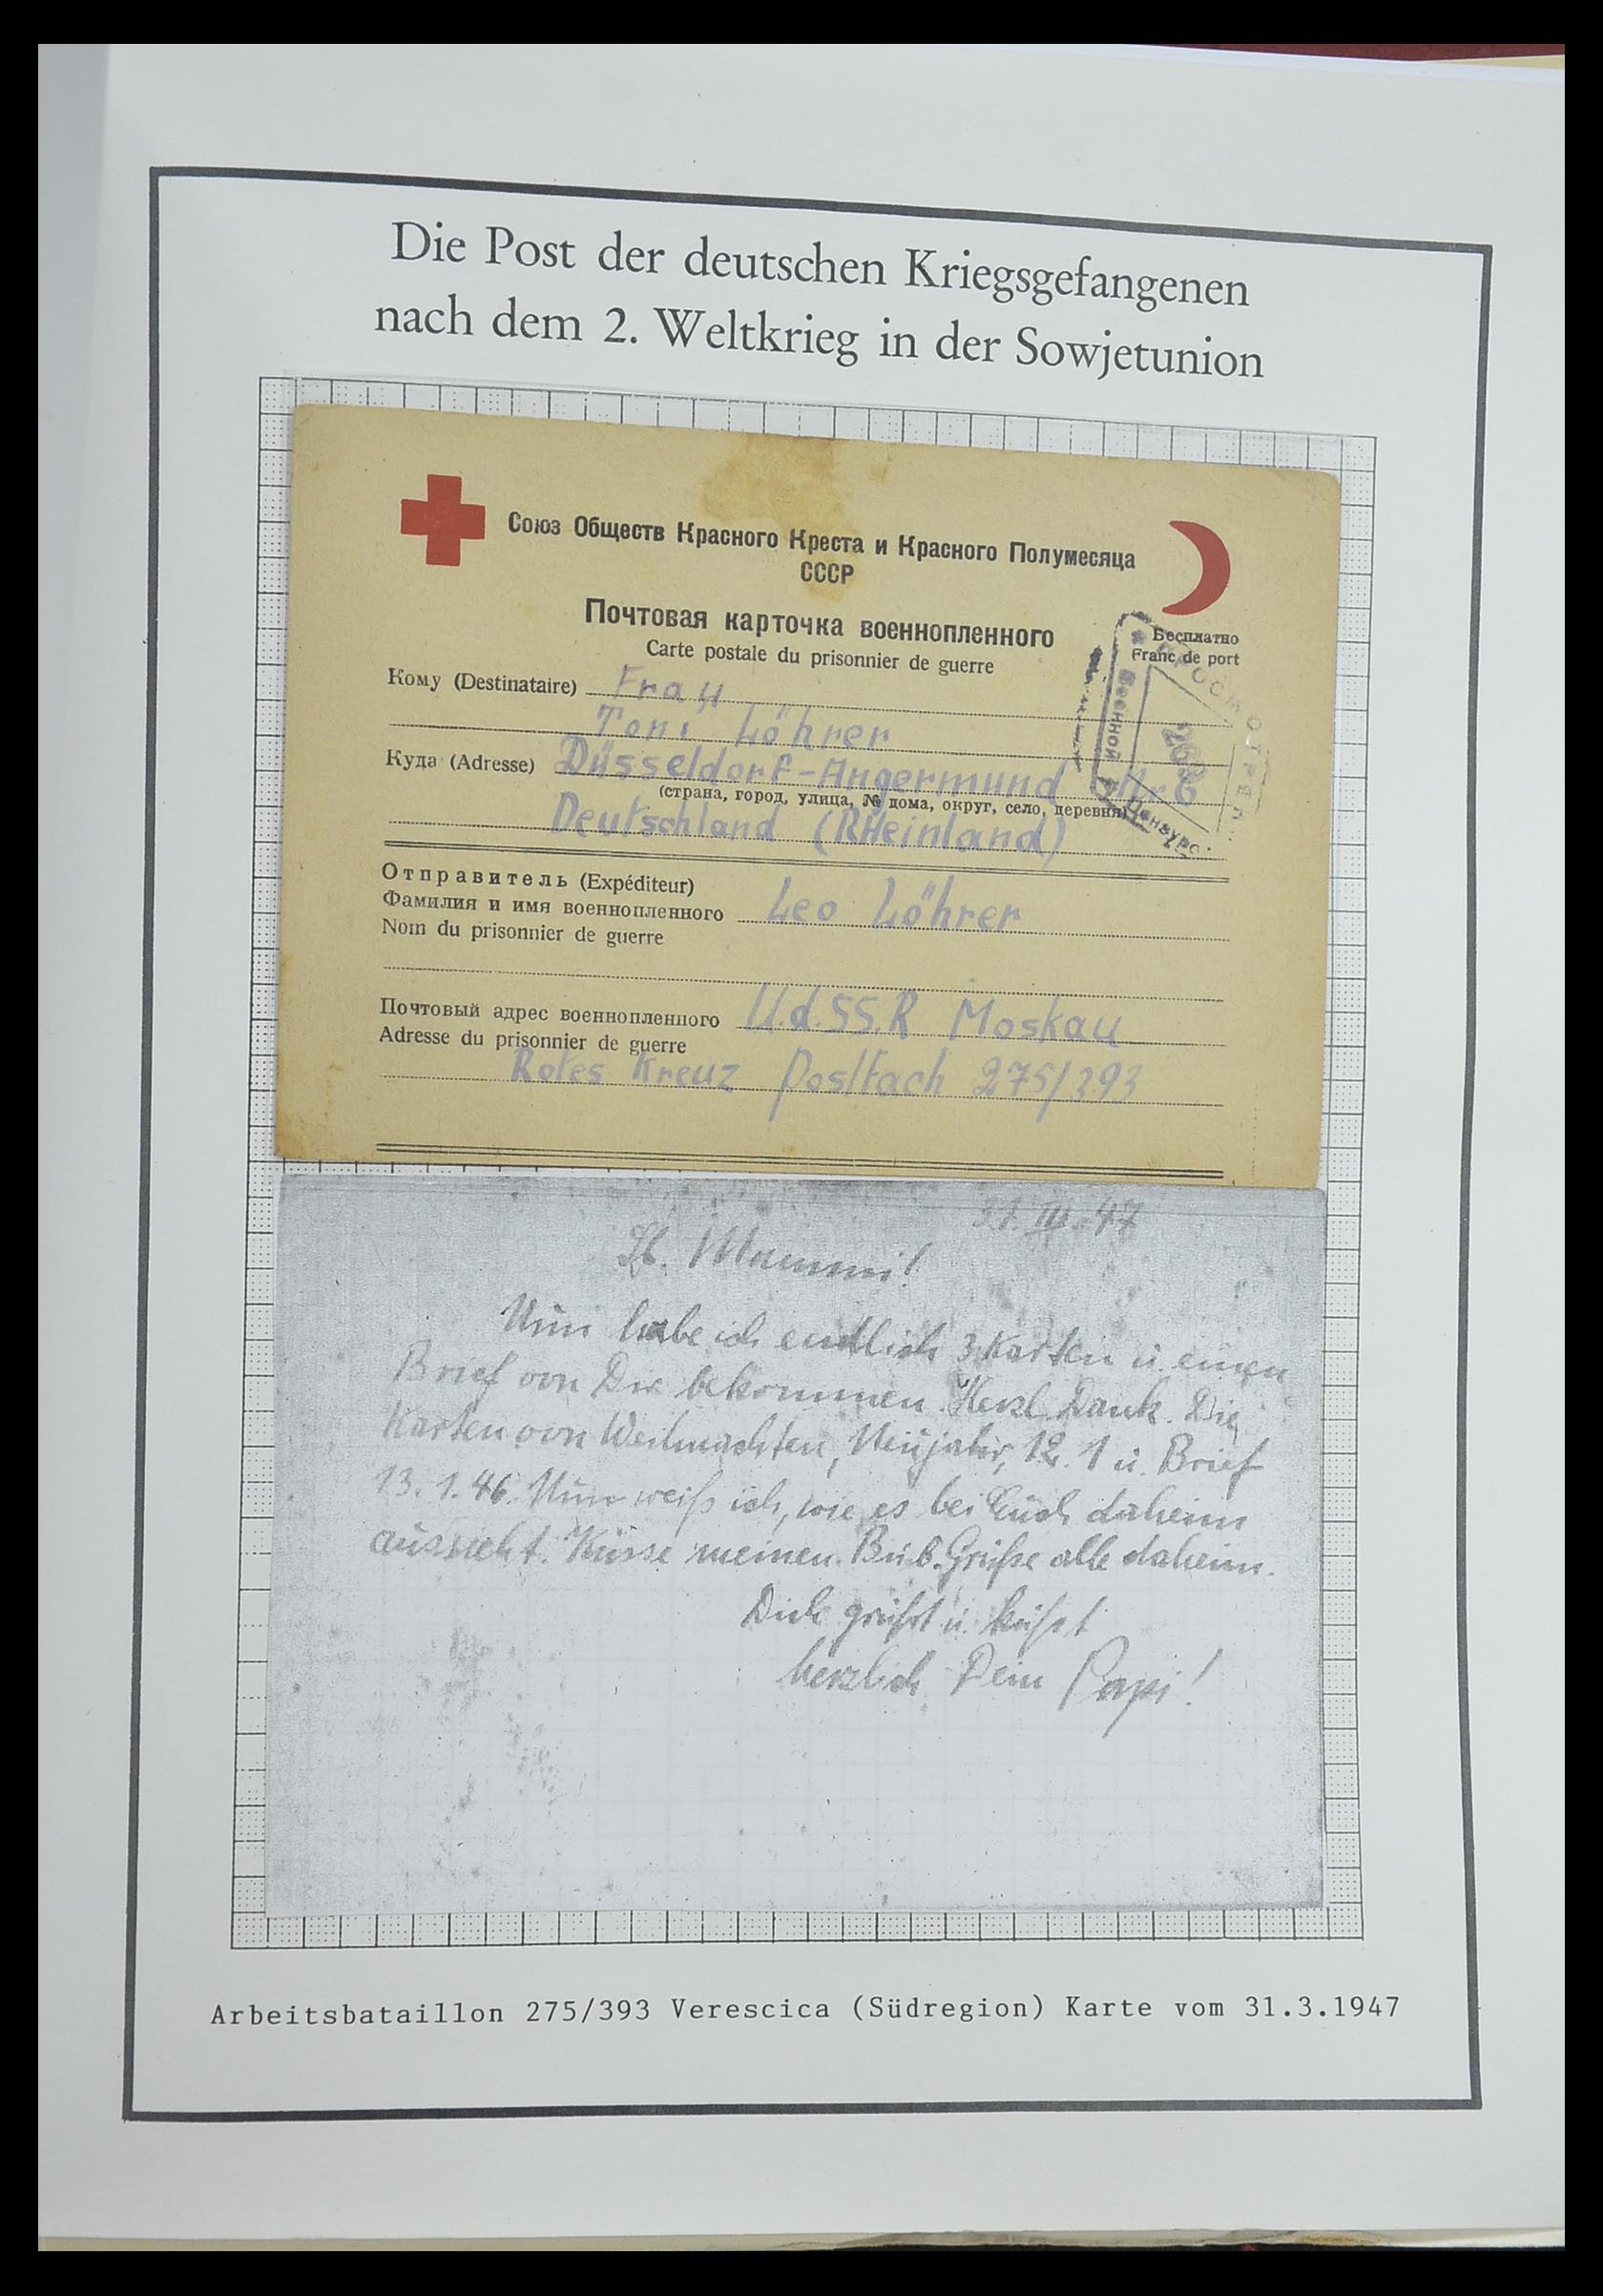 Die Post der deutschen Kriegsgefangenen
nach dem 2. Weltkrieg in der Sowjetunion
Союз Обществ Красного Креста и Красного Полумесяца
СССР
Почтовая карточка военнопленного
Carte postale du prisonnier de guerre
Бесплатно
Franc de port
Кому (Destinataire) Frau
Toni Löhrer
Куда (Adresse) Düsseldorf-Angermund Nr. 6
(страна, город, улица, № дома, округ, село, деревня)
Deutschland (RHeinland)
Военной Цензурой
Отправитель (Expéditeur)
Фамилия и имя военнопленного Leo Löhrer
Nom du prisonnier de guerre
Почтовый адрес военнопленного U.d.SS.R Moskau
Adresse du prisonnier de guerre
Rotes Kreuz Postfach 275/393
31. III. 47
Lb. Mammi!
Nun habe ich endlich 3 Karten u. einen
Brief von Dir bekommen. Herzl. Dank. Die
Karten von Weihnachten, Neujahr, 12. 1 u. Brief
13. 1. 46. Nun weiß ich, wie es bei Euch daheim
aussieht. Küsse meinen Bub. Grüße alle daheim.
Dich grüßt u. küßt
herzlich Dein Papi!
Arbeitsbataillon 275/393 Verescica (Südregion) Karte vom 31.3.1947